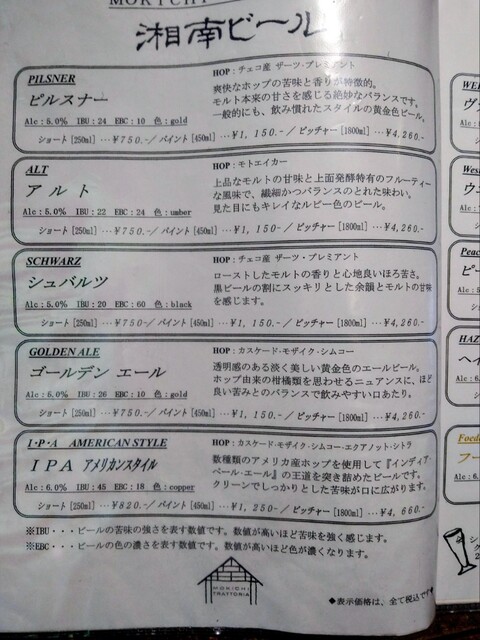 MORICHI
湘南ビール
PILSNER
ピルスナー
Alc：5.0% IBU：24 EBC：10 色：gold
HOP：チェコ産 ザーツ・プレミアント
爽快なホップの苦味と香りが特徴的。
モルト本来の甘さを感じる絶妙なバランスです。
一般的にも、飲み慣れたスタイルの黄金色ビール。
ショート [250ml] …￥750.-／パイント [450ml] …￥1, 150.-／ ピッチャー [1800ml] …￥4,260.-
ALT
アルト
Alc：5.0% IBU：22 EBC：24 色：umber
HOP：モトエイカー
上品なモルトの甘味と上面発酵特有のフルーティー
な風味で、繊細かつバランスのとれた味わい。
見た目にもキレイなルビー色のビール。
ショート [250ml] …￥750.-／パイント [450ml] …￥1, 150-／ ピッチャー [1800ml] …￥4,260.-
SCHWARZ
シュバルツ
Alc：5.0% IBU：20 EBC：60 色：black
HOP：チェコ産 ザーツ・プレミアント
ローストしたモルトの香りと心地良いほろ苦さ。
黒ビールの割にスッキリとした余韻とモルトの甘味
を感じます。
ショート [250ml] …￥750-／パイント [450ml] …￥1, 150.-／ ピッチャー [1800ml] …￥4,260.-
GOLDEN ALE
ゴールデン エール
Alc：5.0% IBU：26 EBC：10 色：gold
HOP：カスケード・モザイク・シムコー
透明感のある淡く美しい黄金色のエールビール。
ホップ由来の柑橘類を思わせるニュアンスに、ほど
良い苦みとのバランスで飲みやすい口あたり。
ショート [250ml] …￥750.-／パイント [450ml] …￥1, 150.-／ ピッチャー [1800ml] …￥4,260.-
I・P・A AMERICAN STYLE
ＩＰＡ アメリカンスタイル
Alc：6.0% IBU：45 EBC：18 色：copper
HOP：カスケード・モザイク・シムコー・エクアノット・シトラ
数種類のアメリカ産ホップを使用して『インディア・
ペール・エール』の王道を突き詰めたビールです。
クリーンでしっかりとした苦味が口に広がります。
ショート [250ml] …￥820.-／パイント [450ml] …￥1, 250-／ ピッチャー [1800ml] …￥4, 660.-
※IBU・・・ビールの苦味の強さを表す数値です。数値が高いほど苦味を強く感じます。
※EBC・・・ビールの色の濃さを表す数値です。数値が高いほど色が濃くなります。
MORICHI
TRATTORIA
◆表示価格は、全て税込です